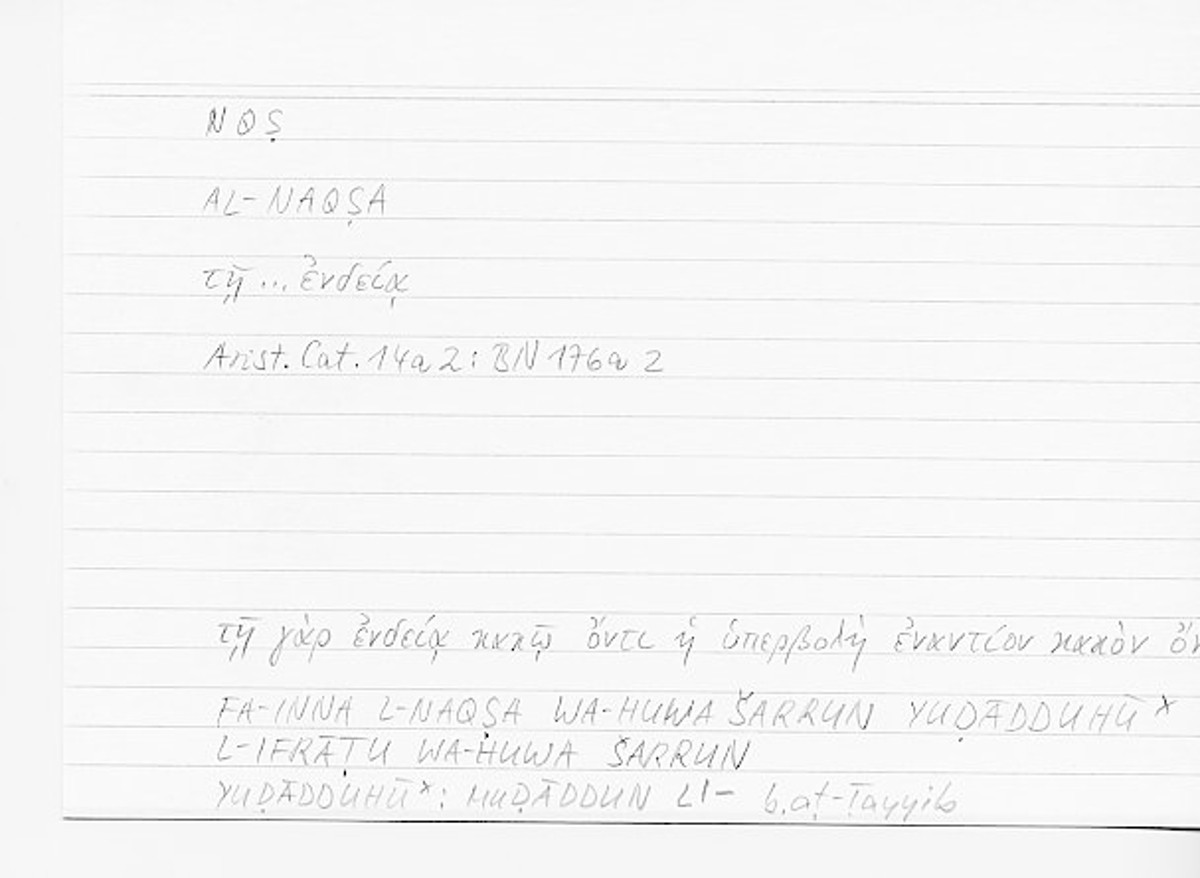 NQṢ
AL-NAQṢA
τῇ ... ἐνδείᾳ
Arist. Cat. 14a2: BN 176a 2
τῇ γὰρ ἐνδείᾳ κακῷ ὄντι ἡ ὑπερβολὴ ἐναντίον κακὸν ὄν
FA-INNA L-NAQṢA WA-HUWA ŠARRUN YUḌĀDDUHŪˣ
L-IFRĀṬU WA-HUWA ŠARRUN
YUḌĀDDUHŪˣ: MUḌĀDDUN LI- b.aṭ-Ṭayyib